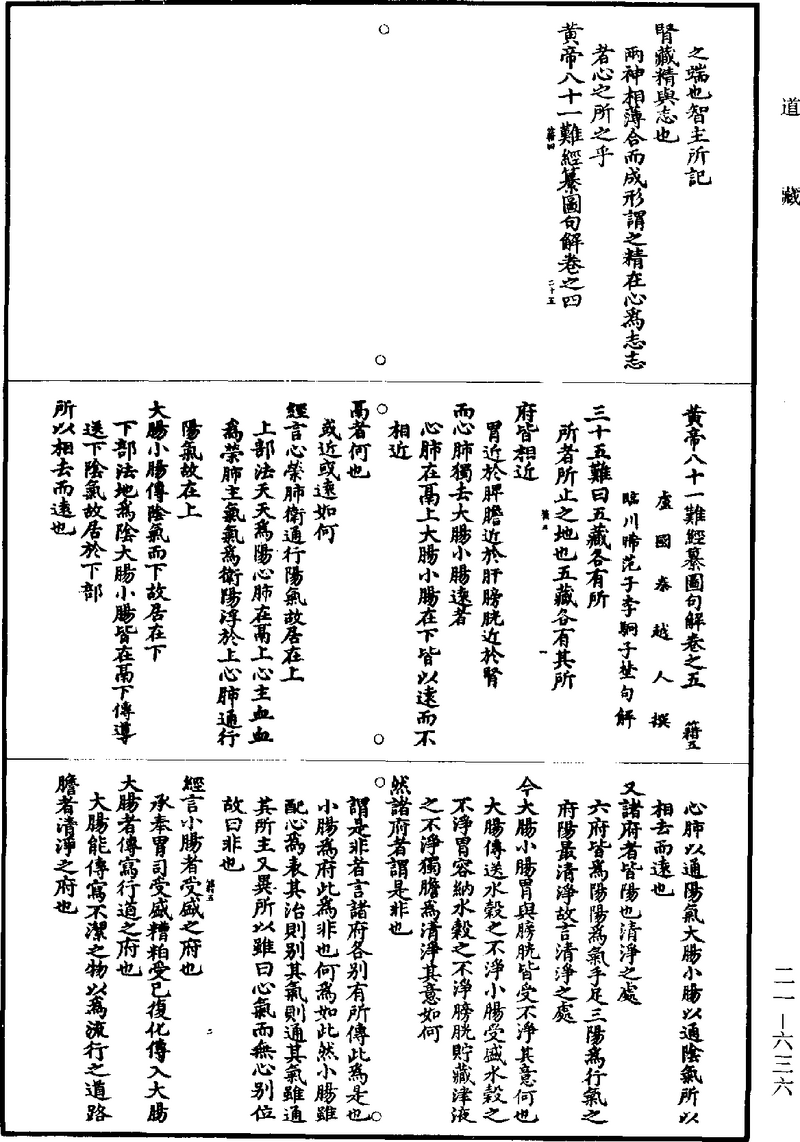 道藏
之端也智主所記
腎藏精與志也
兩神相薄合而成形謂之精在心爲志志
者心之所之乎
黃帝八十一難經纂圖句解卷之四
籍四
二十五
黃帝八十一難經纂圖句解卷之五 籍五
盧國秦越人撰
臨川晞范子李駉子埜句解
三十五難曰五藏各有所
所者所止之地也五藏各有其所
籍五
一
府皆相近
胃近於脾膽近於肝膀胱近於腎
而心肺獨去大腸小腸遠者
心肺在鬲上大腸小腸在下皆以遠而不
相近
鬲者何也
或近或遠如何
經言心榮肺衛通行陽氣故居在上
上部法天天爲陽心肺在鬲上心主血血
爲榮肺主氣氣爲衛陽浮於上心肺通行
陽氣故在上
大腸小腸傳陰氣而下故居在下
下部法地爲陰大腸小腸皆在鬲下傳導
送下陰氣故居於下部
所以相去而遠也
心肺以通陽氣大腸小腸以通陰氣所以
相去而遠也
又諸府者皆陽也清淨之處
六府皆爲陽陽爲氣手足三陽爲行氣之
府陽最清淨故言清淨之處
今大腸小腸胃與膀胱皆受不淨其意何也
大腸傳送水穀之不淨小腸受盛水穀之
不淨胃容納水穀之不淨膀胱貯藏津液
之不淨獨膽爲清淨其意如何
然諸府者謂是非也
謂是非者言諸府各別有所傳此爲是也
小腸爲府此爲非也何爲如此然小腸雖
配心爲表其治則別其氣則通其氣雖通
其所主又異所以雖曰心氣而無心別位
故曰非也
籍五
二
經言小腸者受盛之府也
承奉胃司受盛糟粕受已復化傳入大腸
大腸者傳寫行道之府也
大腸能傳寫不潔之物以爲流行之道路
膽者清淨之府也
二一—六三六